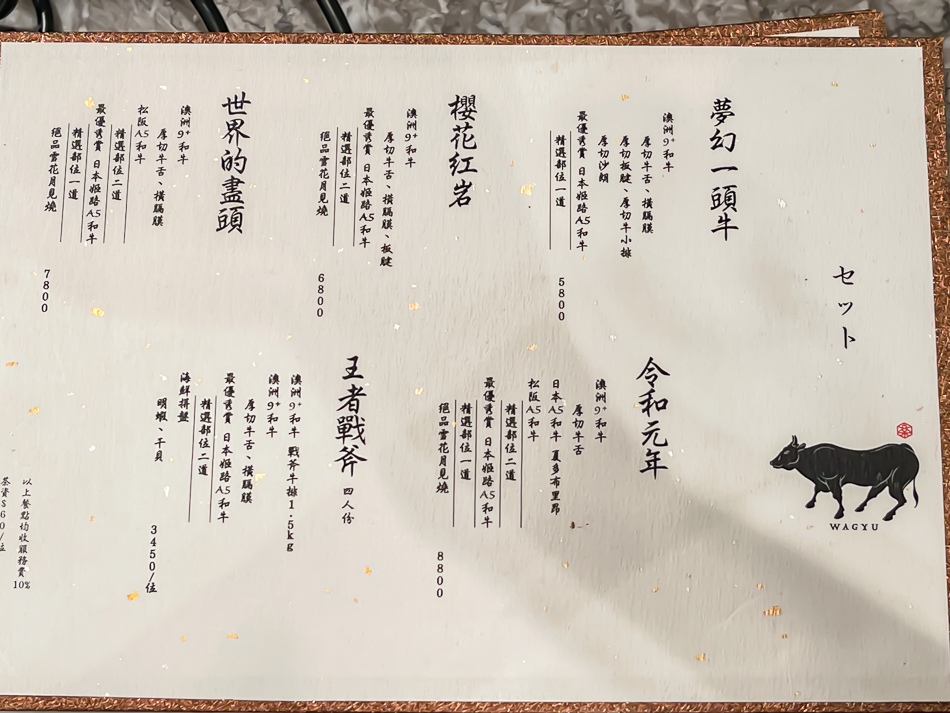 セット
WAGYU
夢幻一頭牛
澳洲9+和牛
厚切牛舌、橫膈膜
厚切板腱、厚切牛小排
厚切沙朗
最優秀賞 日本姬路A5和牛
精選部位一道
5800
櫻花红岩
澳洲9+和牛
厚切牛舌、橫膈膜、板腱
最優秀賞 日本姬路A5和牛
精選部位二道
絕品雪花月見燒
6800
世界的盡頭
澳洲9+和牛
厚切牛舌、橫膈膜
松阪A5和牛
精選部位二道
最優秀賞 日本姬路A5和牛
精選部位一道
絕品雪花月見燒
7800
令和元年
澳洲9+和牛
厚切牛舌
日本A5和牛 夏多布里昂
松阪A5和牛
精選部位二道
最優秀賞 日本姬路A5和牛
精選部位一道
絕品雪花月見燒
8800
王者戰斧 四人份
澳洲9+和牛 戰斧牛排1.5kg
澳洲9+和牛
厚切牛舌、橫膈膜
最優秀賞 日本姬路A5和牛
精選部位二道
海鮮拼盤
明蝦、干貝
3450/位
以上餐點均收服務費10%
茶資$60/位